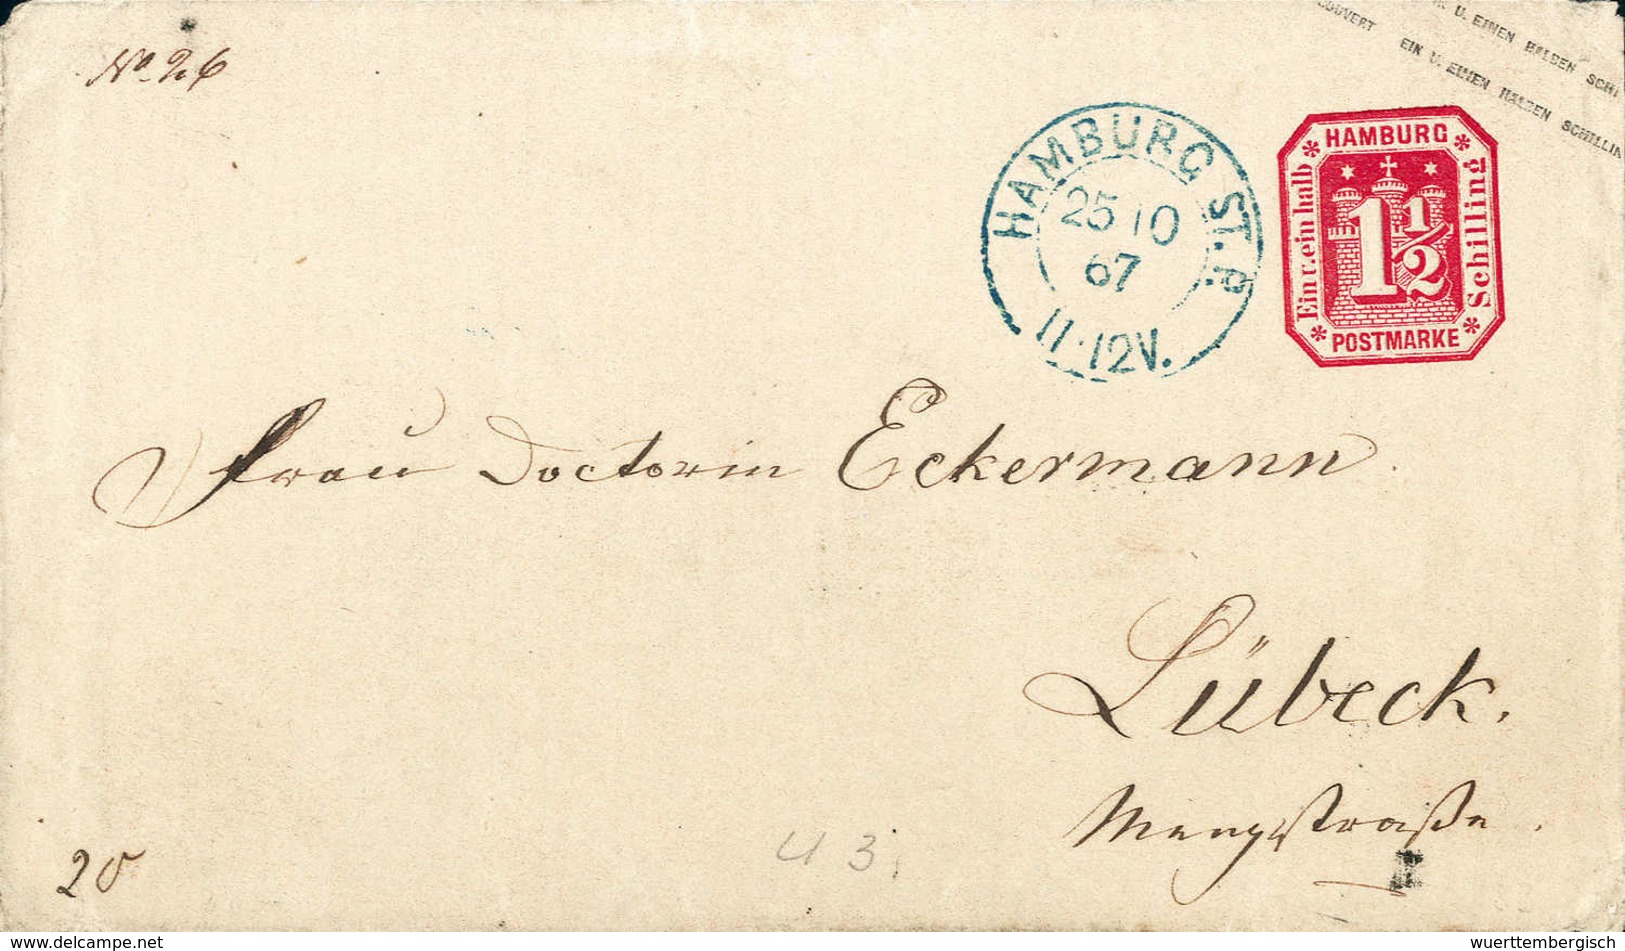 No. 26
U. EINEN HALBEN SCHI
COUVERT EIN U. EINEN HALBEN SCHILLIN
HAMBURG ST. P.
25 10
67
11-12V.
HAMBURG
Ein u. ein halb
1 1/2
Schilling
POSTMARKE
Frau Doctorin Eckermann.
Lübeck.
Mengstraße.
20
U 3
www.delcampe.net
wuerttembergisch